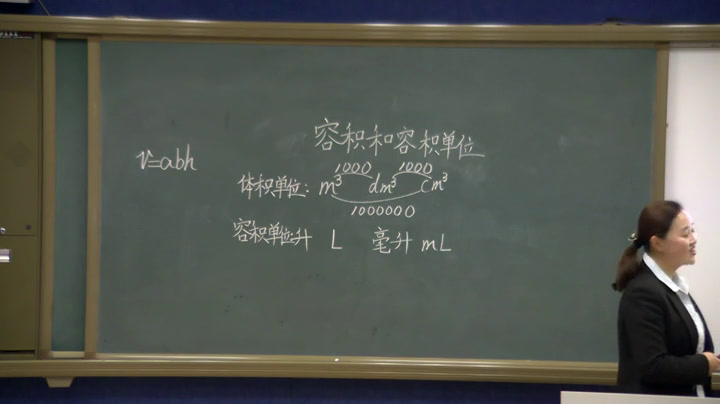 容积和容积单位
V=abh
1000 1000
体积单位: m³ dm³ cm³
1000000
容积单位升 L 毫升 mL